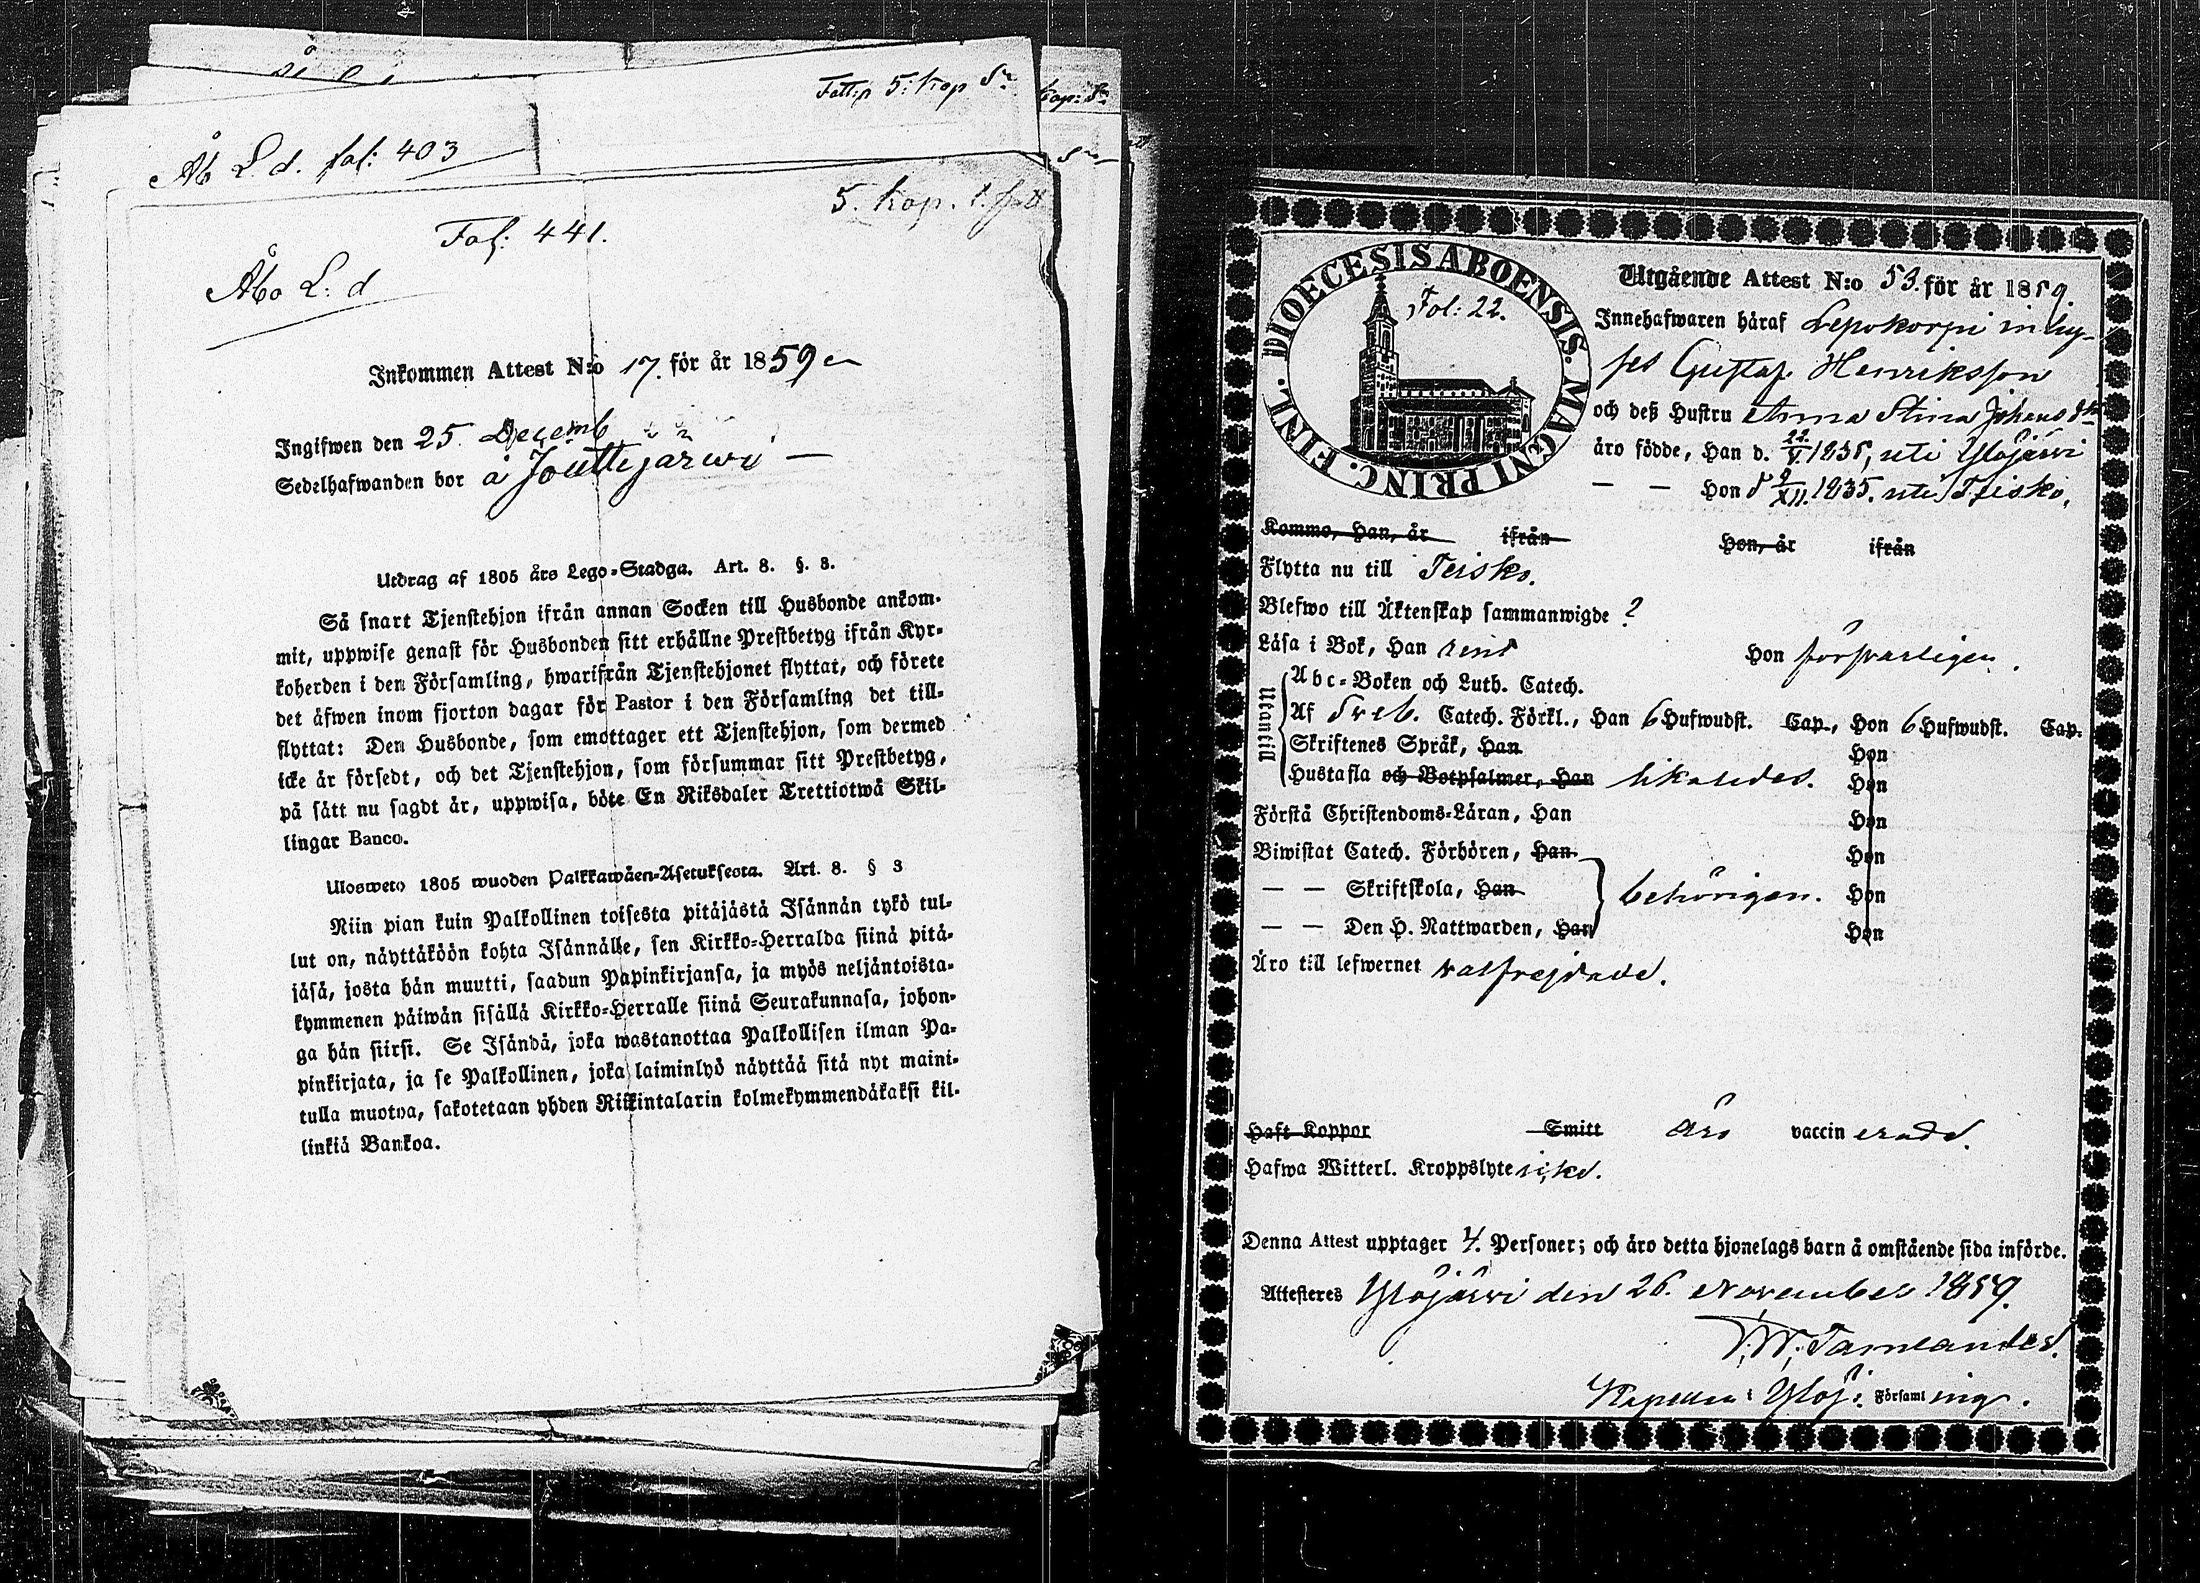 Fattp 5: kop Sr
Åb L. d. fol: 403
5. kop. t. fatt
Fol: 441.
Åbo L: d
Inkommen Attest N:o 17. för år 1859
Ingifwen den 25. Decemb
Sedelhafwanden bor å Jouttejärwi —
Utdrag af 1805 års Lego-Stadga. Art. 8. §. 3.
Så snart Tjenstehjon ifrån annan Socken till Husbonde ankom-
mit, uppwise genast för Husbonden sitt erhållne Prestbetyg ifrån Kyr-
koherden i den Församling, hwarifrån Tjenstehjonet flyttat, och förete
det äfwen inom fjorton dagar för Pastor i den Församling det till-
flyttat: Den Husbonde, som emottager ett Tjenstehjon, som dermed
icke är försedt, och det Tjenstehjon, som försummar sitt Prestbetyg,
på sätt nu sagdt är, uppwisa, böte En Riksdaler Trettiotwå Skil-
lingar Banco.
Ulosweto 1805 wuoden Palkkawäen-Asetuksesta. Art. 8. § 3
Niin pian kuin Palkollinen toisesta pitäjästä Isännän tykö tul-
lut on, näyttäköön kohta Isännälle, sen Kirkko-Herralda siinä pitä-
jäsä, josta hän muutti, saadun Papinkirjansa, ja myös neljäntoista-
kymmenen päiwän sisällä Kirkko-Herralle siinä Seurakunnasa, johon-
ga hän siirsi. Se Isändä, joka wastanottaa Palkollisen ilman Pa-
pinkirjata, ja se Palkollinen, joka laiminlyö näyttää sitä nyt maini-
tulla muotoa, sakotetaan yhden Riikintalarin kolmekymmendäkaksi kil-
linkiä Bankoa.
DIOECESIS ABOENSIS. MAGNI PRINC. FINL.
Fol: 22.
Utgående Attest N:o 53. för år 1859.
Innehafwaren häraf Lepokorpi inhy-
ses Gustaf Henriksson
och deß Hustru Anna Stina Johansdr
äro födde, Han d. 22/V. 1835, uti Ylöjärwi
— — Hon d 9/XII. 1835. uti Teisko.
Komme, Han, år ifrån Hon, år ifrån
Flytta nu till Teisko.
Blefwo till Äktenskap sammanwigde ?
Läsa i Bok, Han rent Hon försvarligen.
Utantill
Abc-Boken och Luth. Catech.
Af Sveb. Catech. Förkl., Han 6 Hufwudst. Cap., Hon 6 Hufwudst. Cap.
Skriftenes Språk, Han Hon
Hustafla och Botpsalmer, Han likaledes. Hon
Förstå Christendoms-Läran, Han Hon
Biwistat Catech. Förhören, Han Hon
— — Skriftskola, Han behörigen. Hon
— — Den H. Nattwarden, Han Hon
Äro till lefwernet välfrejdade.
Haft Koppor Smitt äro vaccinerade.
Hafwa Witterl. Kroppslyte icke.
Denna Attest upptager 4. Personer; och äro detta hjonelags barn å omstående sida införde.
Attesteres Ylöjärwi den 26. November 1859.
Kapellan i Ylöj: Församling.